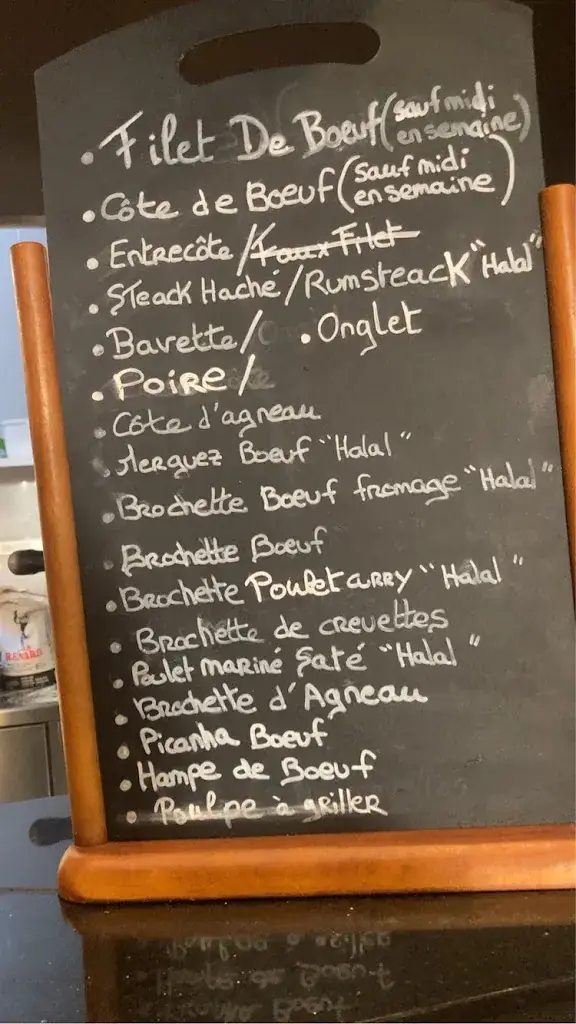 • Filet De Boeuf (sauf midi en semaine)
• Côte de Boeuf (sauf midi en semaine)
• Entrecôte / Faux Filet
• Steack Haché / Rumsteack "Halal"
• Bavette / • Onglet
• Poire /
• Côte d'agneau
• Merguez Boeuf "Halal"
• Brochette Boeuf fromage "Halal"
• Brochette Boeuf
• Brochette Poulet curry "Halal"
• Brochette de crevettes
• Poulet mariné Saté "Halal"
• Brochette d'Agneau
• Picanha Boeuf
• Hampe de Boeuf
• Poulpe à griller